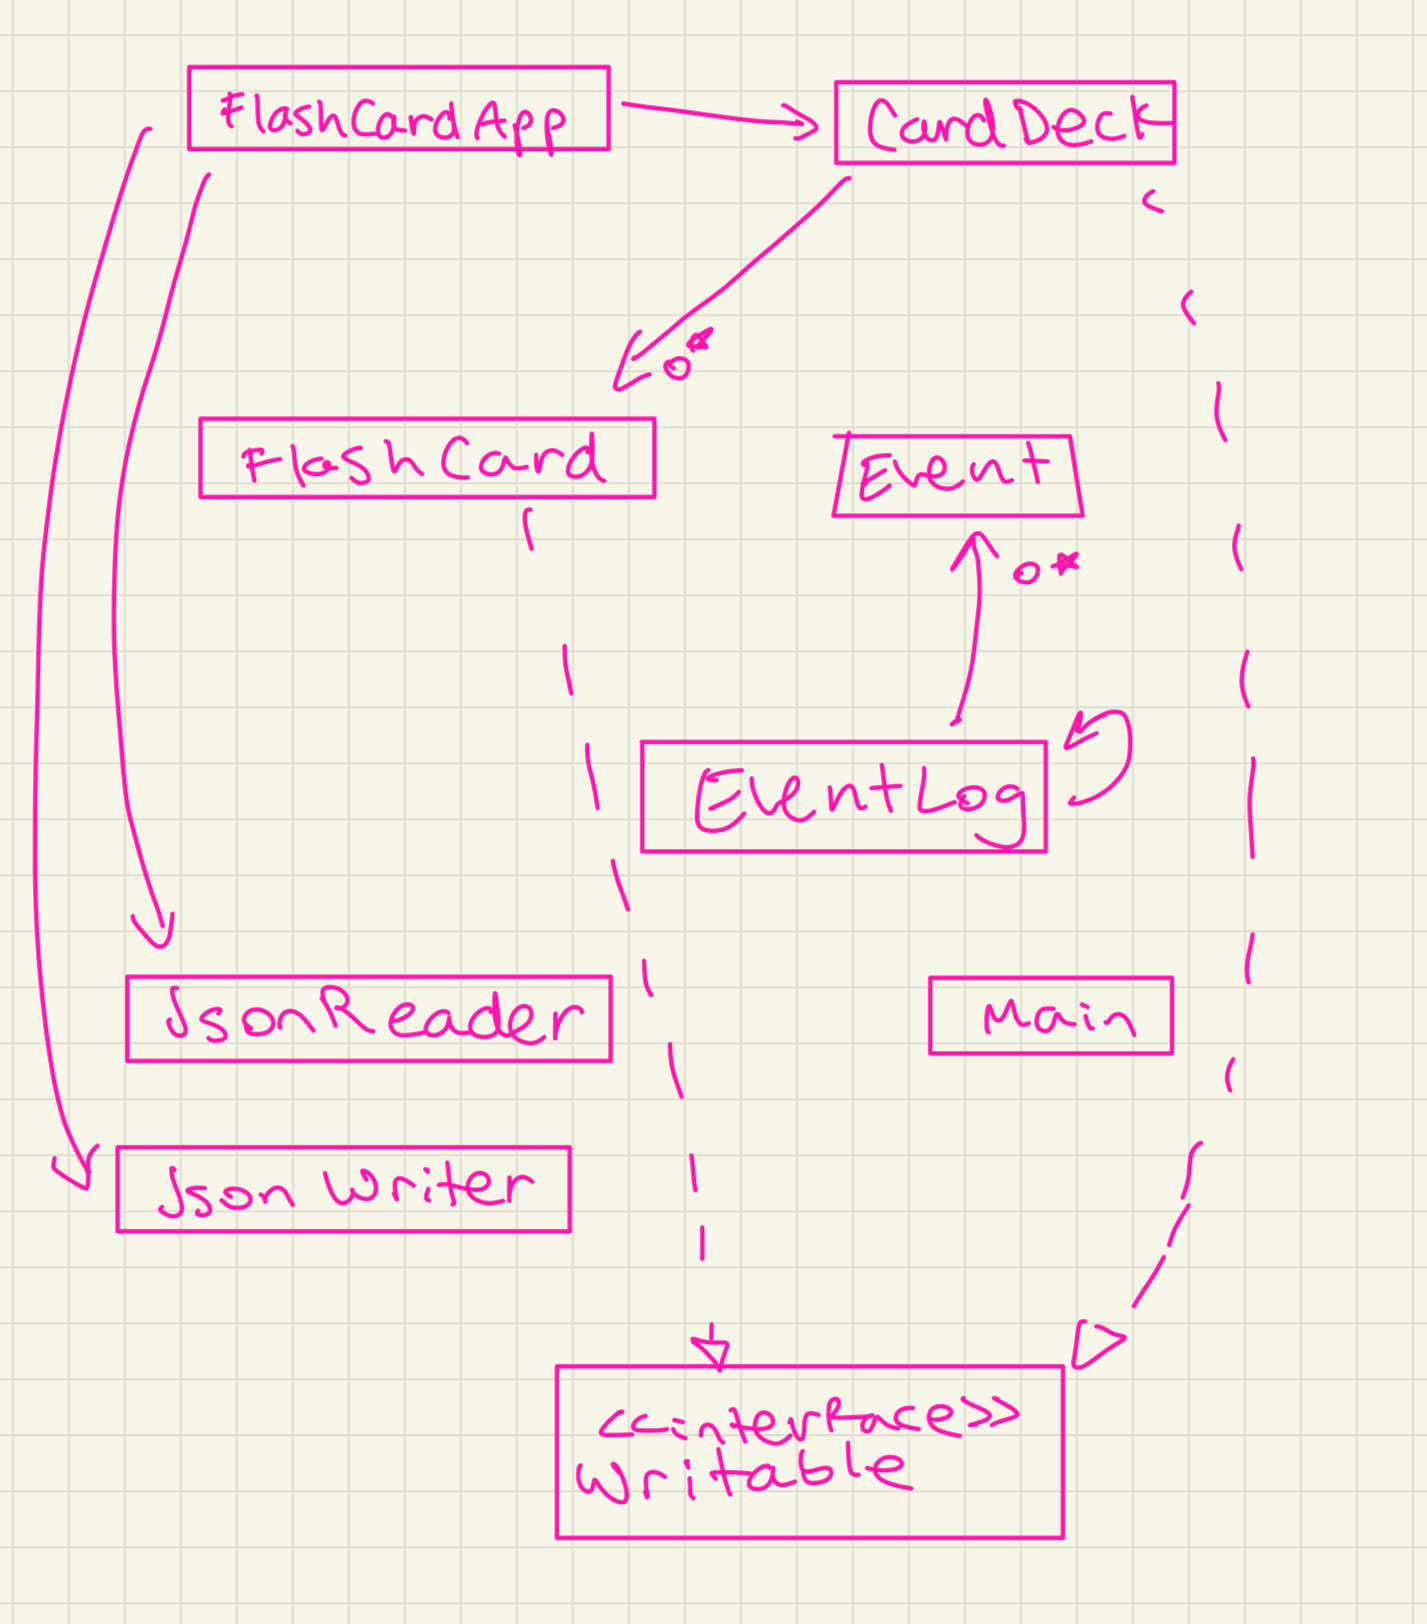 FlashCardApp
CardDeck
0*
FlashCard
Event
0*
EventLog
JsonReader
Main
Json Writer
<<interface>>
Writable